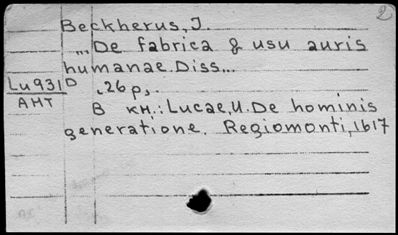 2
Beckherus, J.
...De fabrica & usu auris
humanae. Diss...
Lu931D
.26p,.
АНТ
В кн.: Lucae, U. De hominis
generatione. Regiomonti, 1617